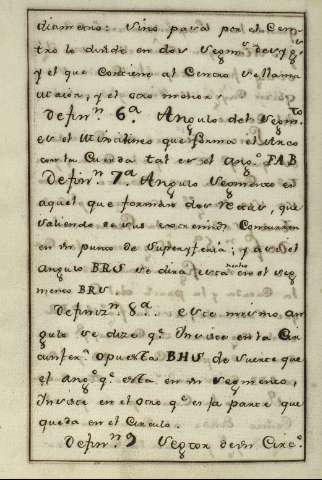 diametro: sino pasa por el Cen
tro le divide en dos segm.^s desig.^s
y el que contiene al Centro se llama
maior, y el otro menor.
Defin.^n 6.^a Angulo del segm.^to
es el mixtilineo que forma el Arco
con la Cuerda tal es el ang.^o FAB
Defin.^n 7.^a Angulo segmento es
aquel que forman dos rectas, que
saliendo de sus extremid.^s concurren
en un punto de su periferia; y assi el
angulo BRS se dira esta en el seg
mento BRS
Definiz.^n 8.^a este mismo an
gulo se dize q.^e insiste en la Cir
cunfer.^a opuesta BHS de suerte que
el ang.^o q.^e esta en un segmento,
insiste en el otro q.^e es la parte que
queda en el Circulo.
Defin.^n 9 Sector de un Circ.^o